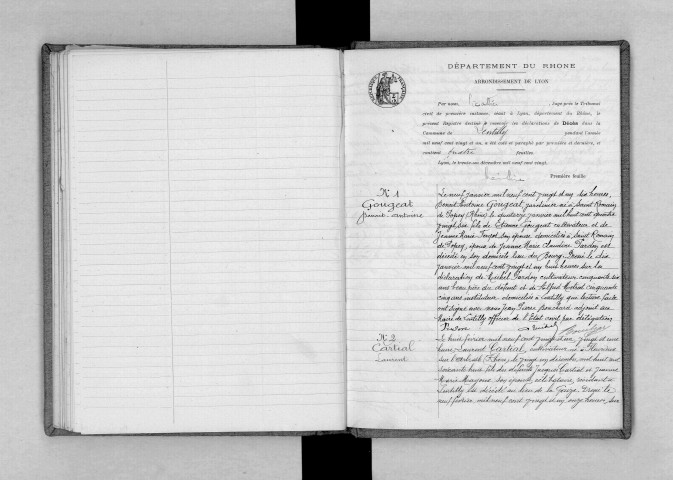 DÉPARTEMENT DU RHONE
ARRONDISSEMENT DE LYON
Par nous, , Juge près le Tribunal
civil de première instance, séant à Lyon, département du Rhône, le
présent Registre destiné à recevoir les déclarations de Décès dans la
Commune de Lentilly pendant l'année
mil neuf cent vingt et un, a été coté et paraphé par première et dernière, et
contient quatre feuillets.
Lyon, le trente-un décembre mil neuf cent vingt.
Première feuille
N° 1
Gougeat
Benoit-Antoine
Le neuf janvier mil neuf cent vingt et un six heures,
Benoit Antoine Gougeat jardinier né à Saint Romain
de Popey (Rhône) le quatorze janvier mil huit cent quatre
vingt six fils de Etienne Gougeat cultivateur et de
Jeanne Marie son épouse domiciliés à Saint Romain
de Popey, époux de Jeanne Marie Claudine Pardon est
décédé en son domicile lieu du Bourg. Dressé le dix
janvier mil neuf cent vingt et un huit heures sur la
déclaration de Michel Pardon cultivateur cinquante six
ans beau père du défunt et de Alfred cinquante
cinq ans instituteur domiciliés à Lentilly qui lecture faite
ont signé avec nous Jean Pierre Bouchard adjoint au
Maire de Lentilly officier de l'Etat civil par délégation
Pardon
N° 2
Cartial
Laurent
Le huit février mil neuf cent vingt et un vingt et une
heure, Laurent Cartial, cultivateur né à Fleurieux
sur l'Arbresle (Rhône) le vingt un décembre mil huit cent
soixante huit fils des défunts Jacques Cartial et Jeanne
Marie son épouse, célibataire, résidant à
Lentilly est décédé au lieu de la . Dressé le
neuf février mil neuf cent vingt et un onze heures, sur